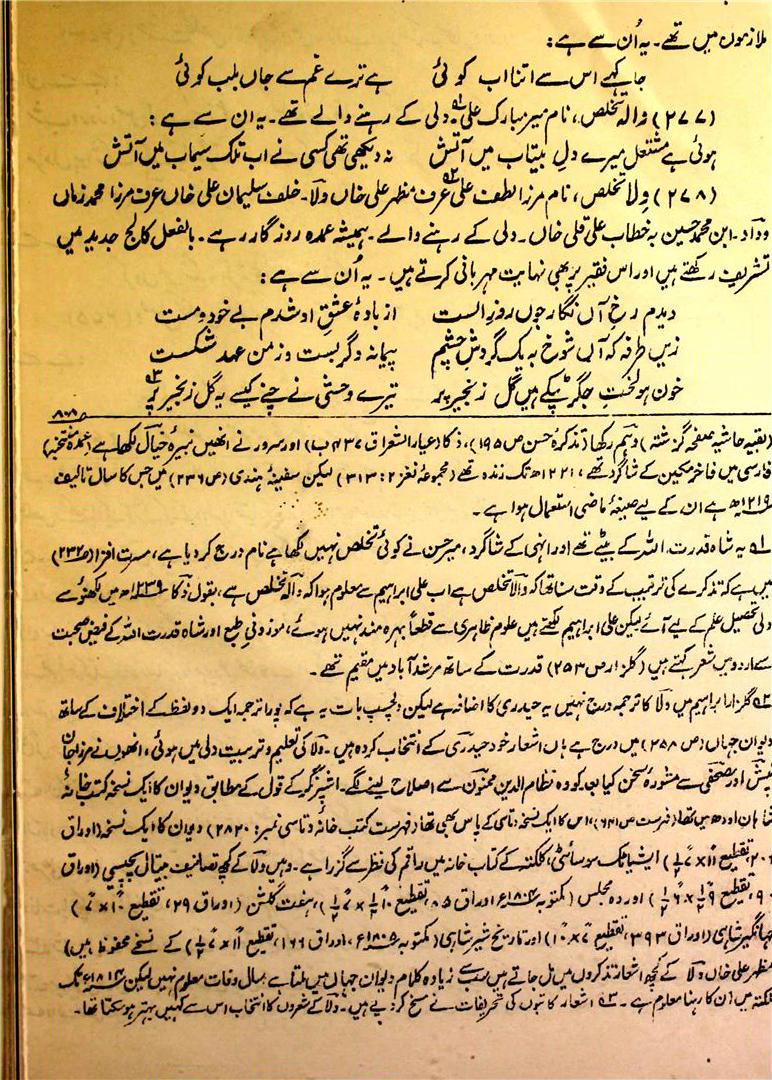 ملازموں میں تھے۔ یہ اُن سے ہے:
جا کہے اس سے اتنا اب کوئی ہے ترے غم سے جاں بلب کوئی
(۲۷۷) والہ تخلص، نام میر مبارک علی۵۱۔ دلی کے رہنے والے تھے۔ یہ ان سے ہے:
ہوئی ہے مشتعل میرے دلِ بیتاب میں آتش نہ دیکھی تھی کسی نے اب تلک سیماب میں آتش
(۲۷۸) وِلا تخلص، نام مرزا لطف علی۵۲ عرف مظہر علی خاں وِلا۔ خلف سلیمان علی خاں عرف مرزا محمد زماں
وداد۔ ابن محمد حسین بہ خطاب علی قلی خاں۔ دلی کے رہنے والے۔ ہمیشہ عمدہ روزگار رہے۔ بالفعل کالج جدید میں
تشریف رکھتے ہیں اور اس فقیر پر بھی نہایت مہربانی کرتے ہیں۔ یہ اُن سے ہے:
دیدم رخِ آں نگار چوں روزِ الست از بادۂ عشقِ او شدم بے خود و مست
زیں طرفہ کہ آں شوخ بہ یک گردشِ چشم پیمانہ دگر بست و زمن عہد شکست
خون ہو لختِ جگر ٹپکے ہیں گل زنجیر پر تیرے وحشی نے چنے کیسے یہ گل زنجیر پر۵۳
(بقیہ حاشیہ صفحہ گزشتہ) وہم رکھا (تذکرۂ حسن ص ۱۹۵)، ذکا (عیار الشعرا ق ۷۳۷ ب) اور سرور نے انھیں نبیرۂ خیال لکھا ہے (عمدۂ منتخبہ)
فارسی میں فاخر مکین کے شاگرد تھے، ۱۲۲۱ھ تک زندہ تھے (مجموعۂ نغز ۲: ۳۱۳) لیکن سفینۂ ہندی (ص ۲۳۶) میں جس کا سال تالیف
۱۲۱۹ھ ہے ان کے لیے صیغۂ ماضی استعمال ہوا ہے۔
۵۱ یہ شاہ قدرت اللہ کے بیٹے تھے اور انہی کے شاگرد، میر حسن نے کوئی تخلص نہیں لکھا ہے نام درج کر دیا ہے، مسرت افزا (ص ۲۳۲)
میں ہے کہ تذکرے کی ترتیب کے وقت سنا تھا کہ والا تخلص ہے اب علی ابراہیم سے معلوم ہوا کہ والہ تخلص ہے، بقول ذکا ۱۲۳۹ھ میں لکھنؤ سے
دلی تحصیل علم کے لیے آئے لیکن علی ابراہیم لکھتے ہیں علوم ظاہری سے قطعاً بہرہ مند نہیں ہوئے، موزونی طبع اور شاہ قدرت اللہ کے فیض صحبت
سے اردو میں شعر کہتے ہیں (گلزار ص ۲۵۳) قدرت کے ساتھ مرشد آباد میں مقیم تھے۔
۵۲ گلزار ابراہیم میں وِلا کا ترجمہ درج نہیں یہ حیدری کا اضافہ ہے لیکن دلچسپ بات یہ ہے کہ پورا ترجمہ ایک دو لفظ کے اختلاف کے ساتھ
دیوان جہاں (ص ۲۵۸) میں درج ہے ہاں اشعار خود حیدری کے انتخاب کردہ ہیں۔ ولا کی تعلیم و تربیت دلی میں ہوئی، انھوں نے مرزا جان
تپش اور مصحفی سے مشورۂ سخن کیا بعد کو وہ نظام الدین ممنون سے اصلاح لینے لگے۔ اشپرنگر کے قول کے مطابق دیوان کا ایک نسخہ کتب خانۂ
شاہان اودھ میں تھا (فہرست ص ۶۴۱)، اس کا ایک نسخہ دتاسی کے پاس بھی تھا (فہرست کتب خانۂ دتاسی نمبر: ۲۸۲۰) دیوان کا ایک نسخہ (اوراق
تقطیع ۱۱ × ۷½) ایشیاٹک سوسائٹی، کلکتہ کے کتاب خانہ میں راقم کی نظر سے گزرا ہے۔ وہیں ولا کے کچھ تصانیف بیتال پچیسی (اوراق
۹۰، تقطیع ۹½ × ۶½) اور دہ مجلس (مکتوبہ ۱۸۰۴ء اوراق ۸۵، تقطیع ۱۰½ × ۷½)، ہفت گلشن (اوراق ۲۹، تقطیع ۱۰ × ۷)
جہانگیر شاہی (اوراق ۳۹۳، تقطیع ۱۰ × ۷) اور تاریخ شیر شاہی (مکتوبہ ۱۸۰۵ء، اوراق ۱۶۶، تقطیع ۱۱ × ۷½) کے نسخے محفوظ ہیں)
مظہر علی خاں ولا کے کچھ اشعار تذکروں میں مل جاتے ہیں سب سے زیادہ کلام دیوان جہاں میں ملتا ہے سال وفات معلوم نہیں لیکن ۱۸۱۴ء تک
کلکتہ میں ان کا رہنا معلوم ہے۔ ۵۳ اشعار کاتبوں کی تحریفات نے مسخ کر دیے ہیں۔ ولا کے شعروں کا انتخاب اس سے کہیں بہتر ہو سکتا تھا۔